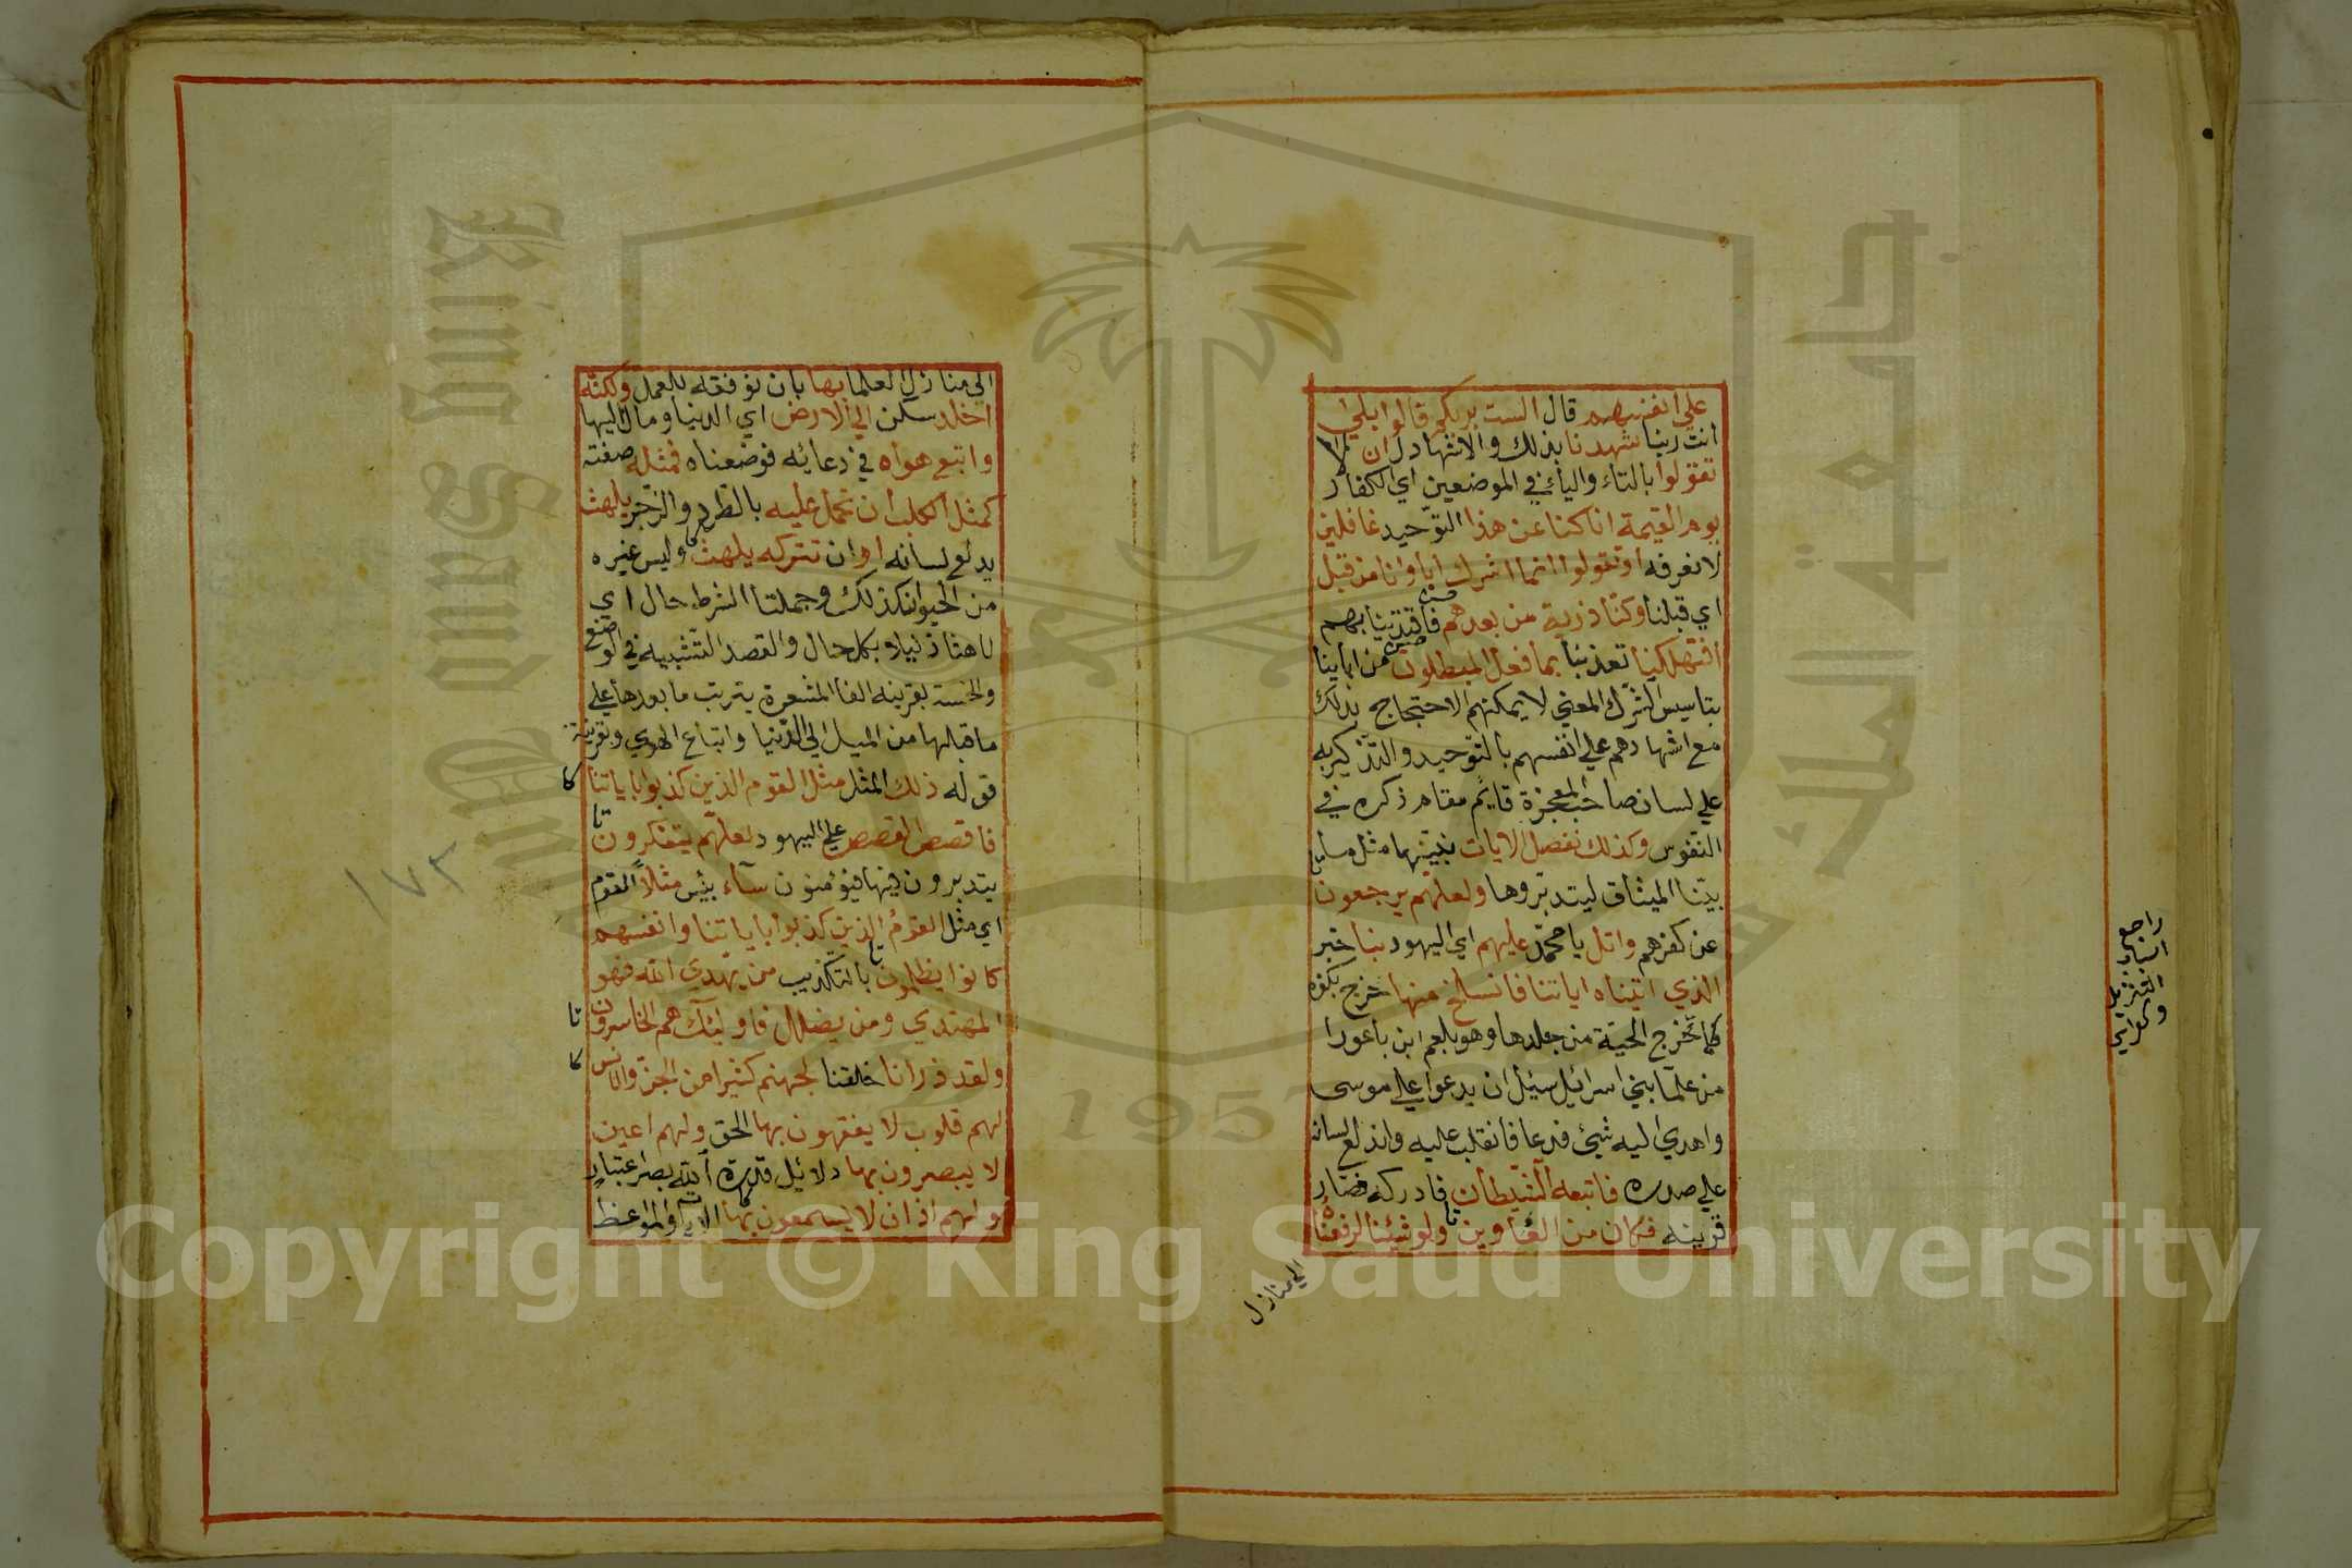 علي انفسهم قال الست بربكم قالوا بلي
انت ربنا شهدنا بذلك والاشهاد ل ان لا
تقولوا بالتاء والياء في الموضعين اي الكفار
يوم القيمة انا كنا عن هذا التوحيد غافلين
لا نعرفه او تقولوا انما اشرك اباونا من قبل
اي قبلنا وكنا ذرية من بعدهم فاقتدينا بهم
افتهلكنا تعذبنا بما فعل المبطلون من ابائنا
بتاسيس الشرك المعني لا يمكنهم الاحتجاج بذلك
مع اشهادهم علي انفسهم بالتوحيد والتذكير به
علي لسان صاحب المعجزة قايم مقام ذكره في
النفوس وكذلك نفصل الايات نبينها مثل ما
بينا الميثاق ليتدبروها ولعلهم يرجعون
عن كفرهم واتل يا محمد عليهم اي اليهود نبا خبر
الذي اتيناه اياتنا فانسلخ منها خرج بكفره
كما تخرج الحية من جلدها وهو بلعم ابن باعورا
من علما بني اسرائيل سئل ان يدعوا علي موسى
واهدي اليه شيئ فدعا فانقلب عليه واندلع لسانه
علي صدره فاتبعه الشيطان فادركه فصار
قرينه فكان من الغاوين ولو شئنا لرفعناه
الي منازل
راجع
التنزيل
الي منازل العلما بها بان نوفقه للعمل ولكنه
اخلد سكن الي الارض اي الدنيا ومال اليها
واتبع هواه في دعائه فوضعناه فمثله صفته
كمثل الكلب ان تحمل عليه بالطرد والزجر يلهث
يدلع لسانه او ان تتركه يلهث وليس غيره
من الحيوان كذلك وجملتا الشرط حال اي
لاهثا ذليلا بكل حال والقصد التشبيه في الوضع
والخسة بقرينه الفا المشعرة بترتب ما بعدها علي
ما قبلها من الميل الي الدنيا واتباع الهوي وبقرينة
قوله ذلك المثل مثل القوم الذين كذبوا باياتنا
فاقصص القصص علي اليهود لعلهم يتفكرون
يتدبرون فيها فيؤمنون سآء بئس مثلا القوم
اي مثل القوم الذين كذبوا باياتنا وانفسهم
كانوا يظلمون بالتكذيب من يهدي الله فهو
المهتدي ومن يضلل فاولئك هم الخاسرون
ولقد ذرانا خلقنا لجهنم كثيرا من الجن والانس
لهم قلوب لا يفقهون بها الحق ولهم اعين
لا يبصرون بها دلائل قدرة الله بصر اعتبار
ولهم اذان لا يسمعون بها الايات والمواعظ
١٧٢
King Saud University
جامعة الملك سعود
1957
Copyright © King Saud University